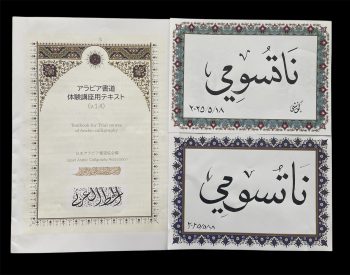 アラビア書道
体験講座用テキスト
Textbook for Trial course
of Arabic calligraphy
日本アラビア書道協会編
(Japan Arabic Calligraphy Association)
الخط العربي
نَاتسُومِي
٢٠٢٥/٥/١٨
نَاتسُومِي
٢٠٢٥/٥/١٨